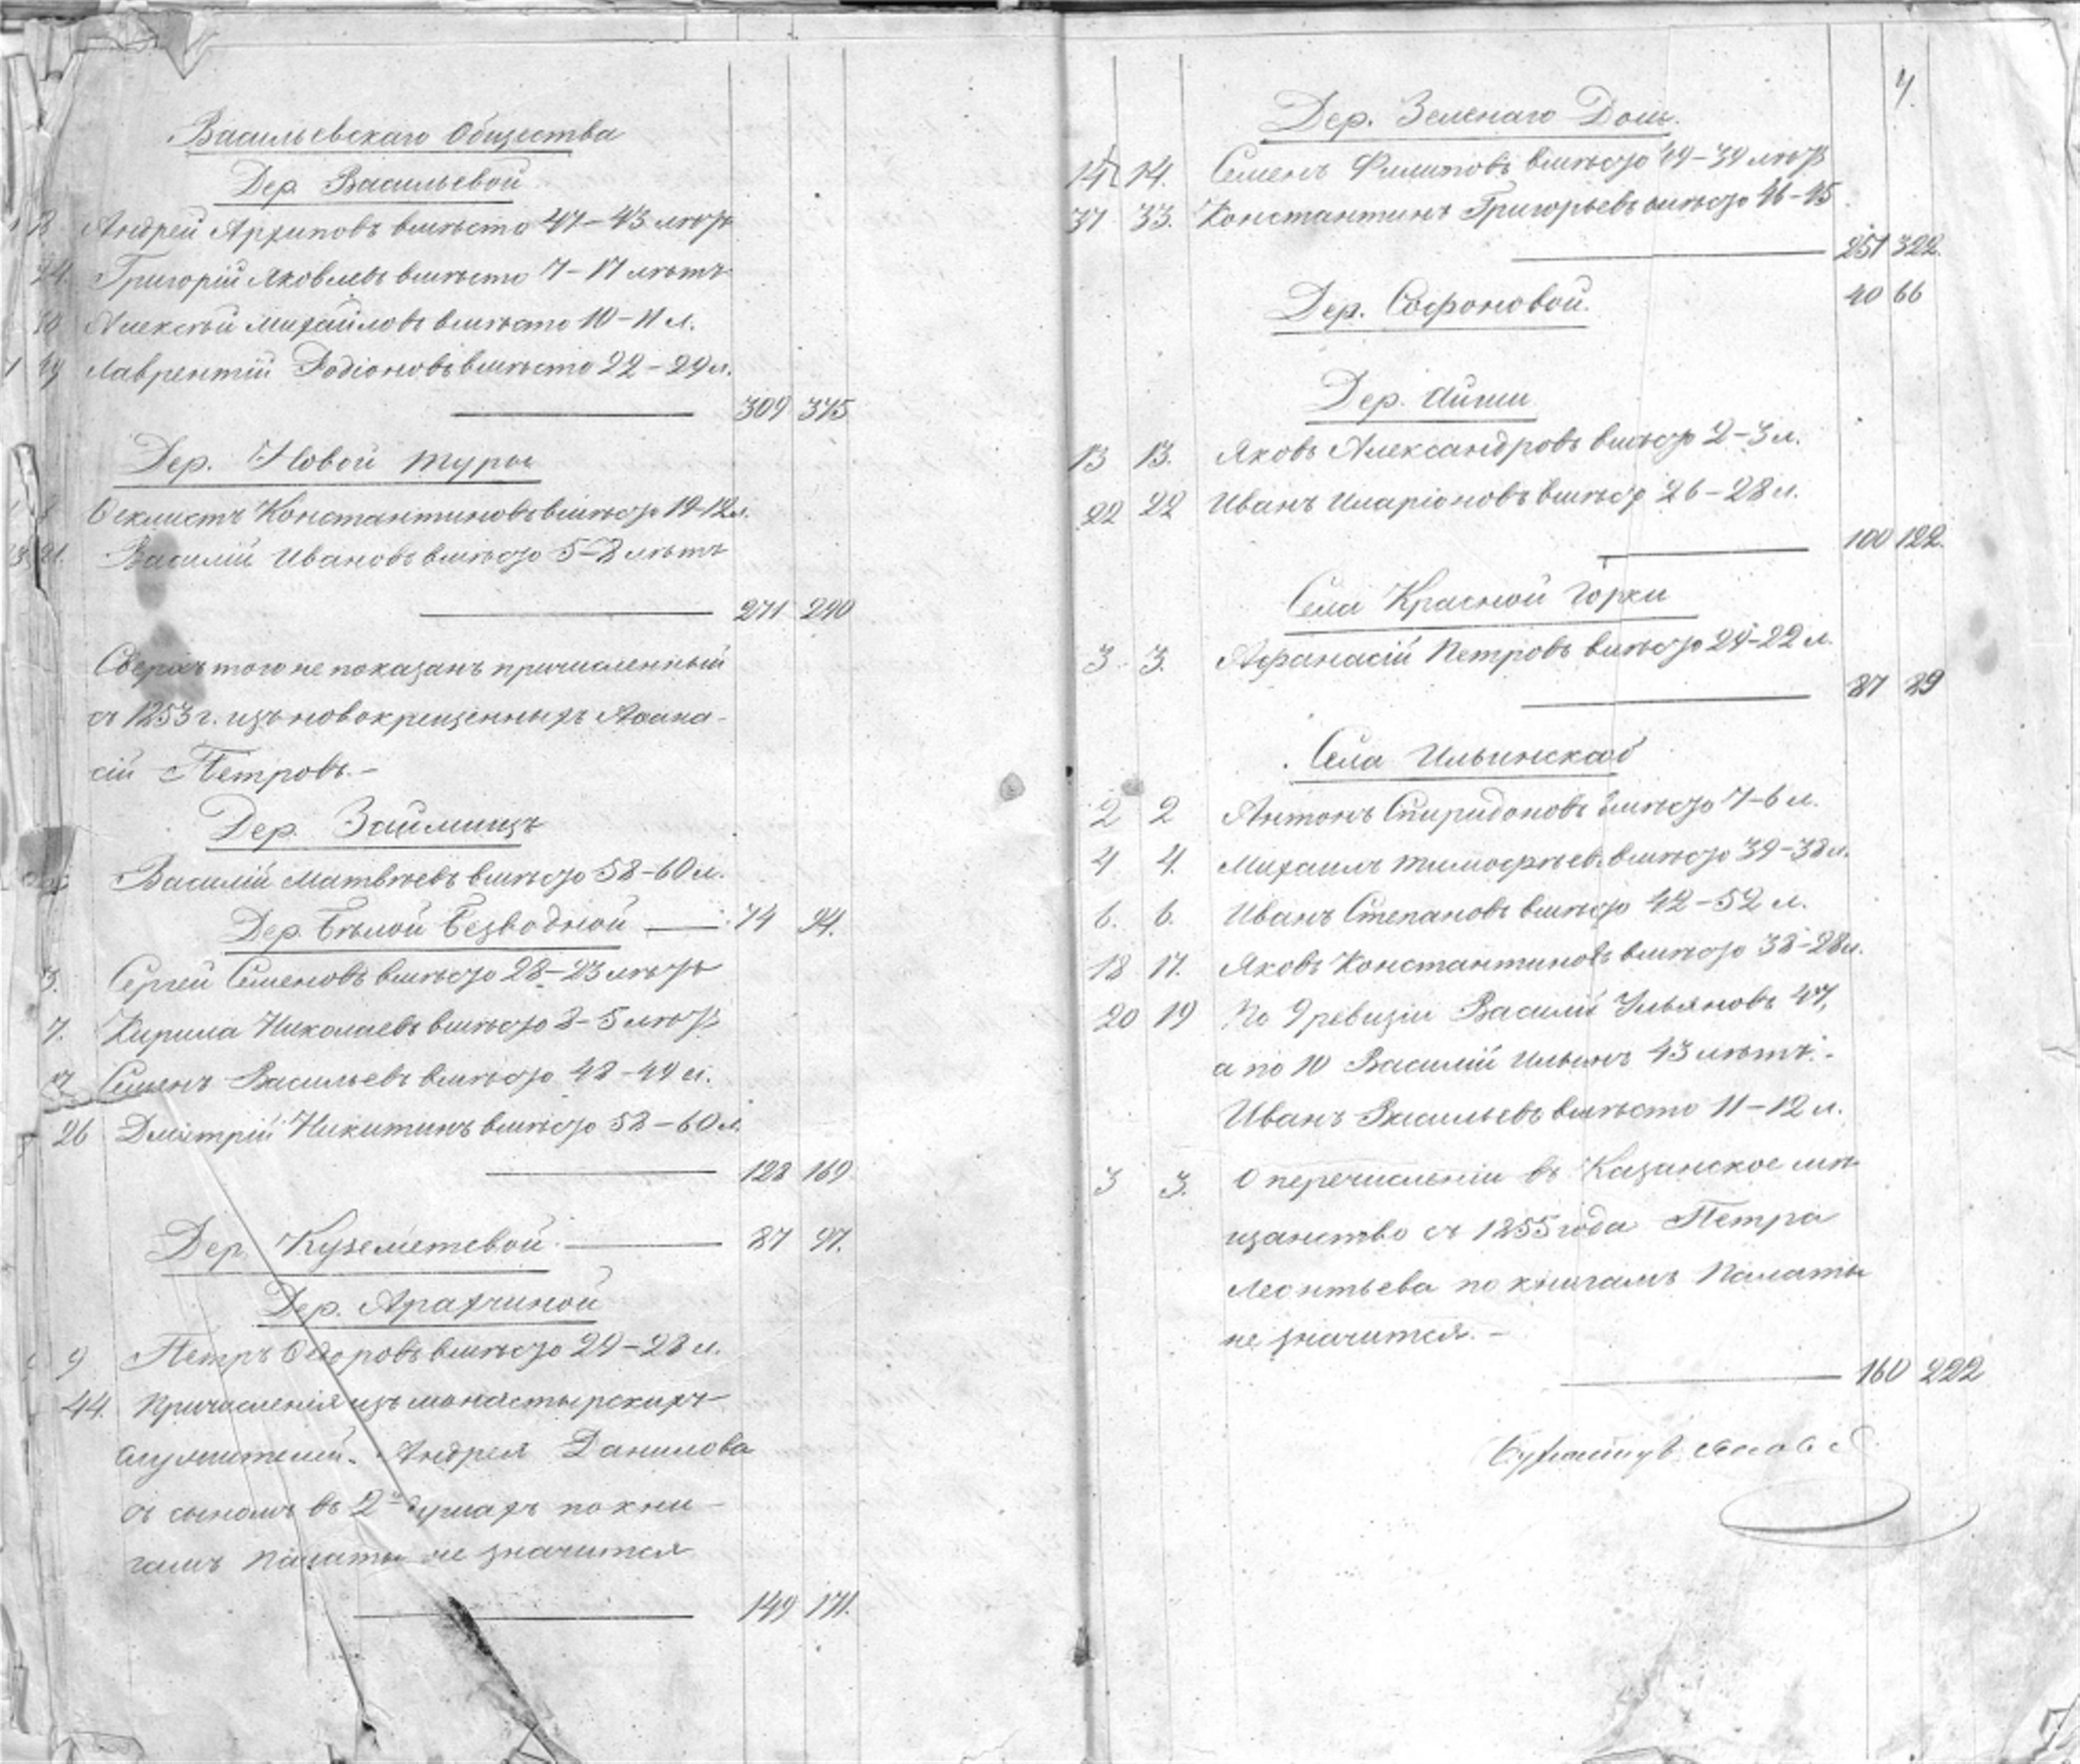 Васильевскаго Общества
Дер. Васильевой
Андрей Архиповъ вмѣсто 47–43 лѣтъ
24. Григорій Яковлевъ вмѣсто 7–17 лѣтъ
Алексѣй Михайловъ вмѣсто 10–11 л.
Лаврентій Родіоновъ вмѣсто 22–29 л.
309 375
Дер. Новой Туры
Феклистъ Константиновъ вмѣсто 19–12 л.
21. Василій Ивановъ вмѣсто 5–8 лѣтъ
271 290
Сверхъ того не показанъ причисленный
съ 1853 г. изъ новокрещенныхъ Афана-
сій Петровъ. –
Дер. Займищъ
Василій Матвѣевъ вмѣсто 58–60 л.
Дер. Бѣлой Безводной 74 94.
3. Сергей Семеновъ вмѣсто 28–23 лѣтъ
7. Кирила Николаевъ вмѣсто 8–5 лѣтъ
Семенъ Васильевъ вмѣсто 48–49 л.
26 Дмитрій Никитинъ вмѣсто 58–60 л.
128 169
Дер. Куземетевой 87 97.
Дер. Арахчиной
9 Петръ Федоровъ вмѣсто 29–28 л.
44. Причисленія изъ монастырскихъ
служителей. Андрея Данилова
съ сыномъ въ 2хъ душахъ по кни-
гамъ Палаты не значится
149 171.
4.
Дер. Зеленаго Дола.
14 14. Семенъ Филиповъ вмѣсто 49–39 лѣтъ
37 33. Константинъ Григорьевъ вмѣсто 46–45
251 322.
Дер. Софоновой. 40 66
Дер. Айши
13 13. Яковъ Александровъ вмѣсто 2–3 л.
22 22 Иванъ Иларіоновъ вмѣсто 26–28 л.
100 122.
Села Красной Горки
3. 3. Афанасій Петровъ вмѣсто 24–22 л.
87 89
Села Ильинскаго
2 2 Антонъ Спиридоновъ вмѣсто 7–6 л.
4 4. Михаилъ Тимофѣевъ вмѣсто 39–38 л.
6. 6. Иванъ Степановъ вмѣсто 42–52 л.
18 17. Яковъ Константиновъ вмѣсто 38–28 л.
20 19 По 9 ревизіи Василій Ульяновъ 47,
а по 10 Василій Ильинъ 43 лѣтъ. –
Иванъ Васильевъ вмѣсто 11–12 л.
3 3. О перечисленіи въ Казанское мѣ
щанство съ 1855 года Петра
Леонтьева по книгамъ Палаты
не значится. –
160 222